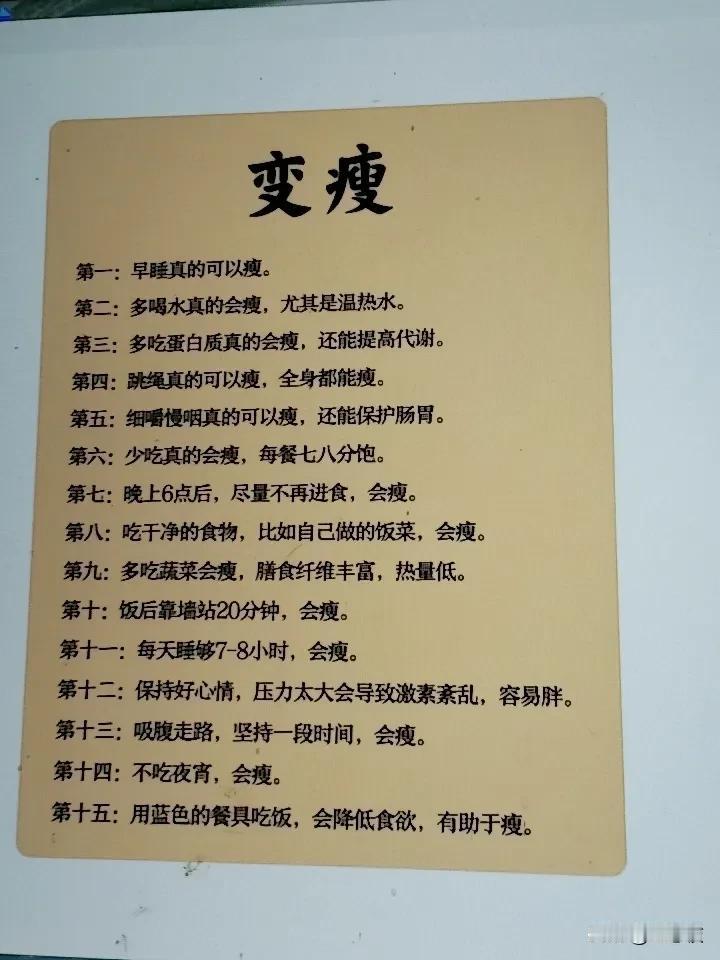 变瘦
第一：早睡真的可以瘦。
第二：多喝水真的会瘦，尤其是温热水。
第三：多吃蛋白质真的会瘦，还能提高代谢。
第四：跳绳真的可以瘦，全身都能瘦。
第五：细嚼慢咽真的可以瘦，还能保护肠胃。
第六：少吃真的会瘦，每餐七八分饱。
第七：晚上6点后，尽量不再进食，会瘦。
第八：吃干净的食物，比如自己做的饭菜，会瘦。
第九：多吃蔬菜会瘦，膳食纤维丰富，热量低。
第十：饭后靠墙站20分钟，会瘦。
第十一：每天睡够7-8小时，会瘦。
第十二：保持好心情，压力太大会导致激素紊乱，容易胖。
第十三：吸腹走路，坚持一段时间，会瘦。
第十四：不吃夜宵，会瘦。
第十五：用蓝色的餐具吃饭，会降低食欲，有助于瘦。